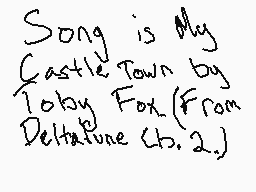 Song is My
Castle Town by
Toby Fox (From
Deltarune Ch. 2.)